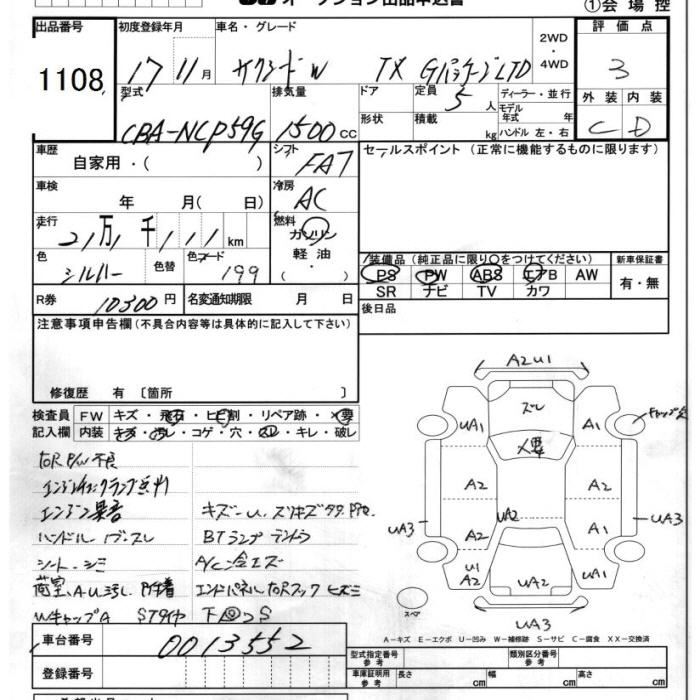 オークション出品申込書
①会場控
出品番号
1108
初度登録年月
17 11月
車名・グレード
サクシードW TX GパッケージLTD
2WD・4WD
評価点
3
外装 内装
C D
型式
CBA-NCP59G
排気量
1500cc
ドア
形状
定員
5人
積載
kg
ディーラー・並行
モデル年式 年
ハンドル 左・右
車歴
自家用・( )
シフト
FA7
セールスポイント (正常に機能するものに限ります)
車検
年 月( 日)
冷房
AC
走行
21万1千111km
燃料
ガソリン
軽油
・( )
色
シルバー
色替
色コード
199
装備品(純正品に限り○をつけてください)
PS PW ABS エアB AW
SR ナビ TV カワ
新車保証書
有・無
R券
10300円
名変通知期限 月 日
後日品
注意事項申告欄(不具合内容等は具体的に記入して下さい)
修復歴 有〔箇所 〕
検査員記入欄
FW キズ・飛石・ヒビ割・リペア跡・X要
内装 キズ・汚レ・コゲ・穴・スレ・キレ・破レ
右R P/W不良
エンジンチェックランプ点灯
エンジン異音
ハンドル1部スレ
シートシミ
荷室、AU汚レ
WキャップA STタイヤ 下回りS
キズ−U、スリキズタタ
A/C
エンドパネル右Rフックヒズミ
A2U1
ズレ
X要
UA1
A1
A2
A2
UA2
UA3
UA3
A2
A1
U1
A2
UA2
UA1
UA3
スペア
A−キズ E−エクボ U−凹み W−補修跡 S−サビ C−腐食 XX−交換済
車台番号
0013552
登録番号
型式指定番号
参考
類別区分番号
参考
車庫証明用
参考
長さ cm
幅 cm
高さ cm